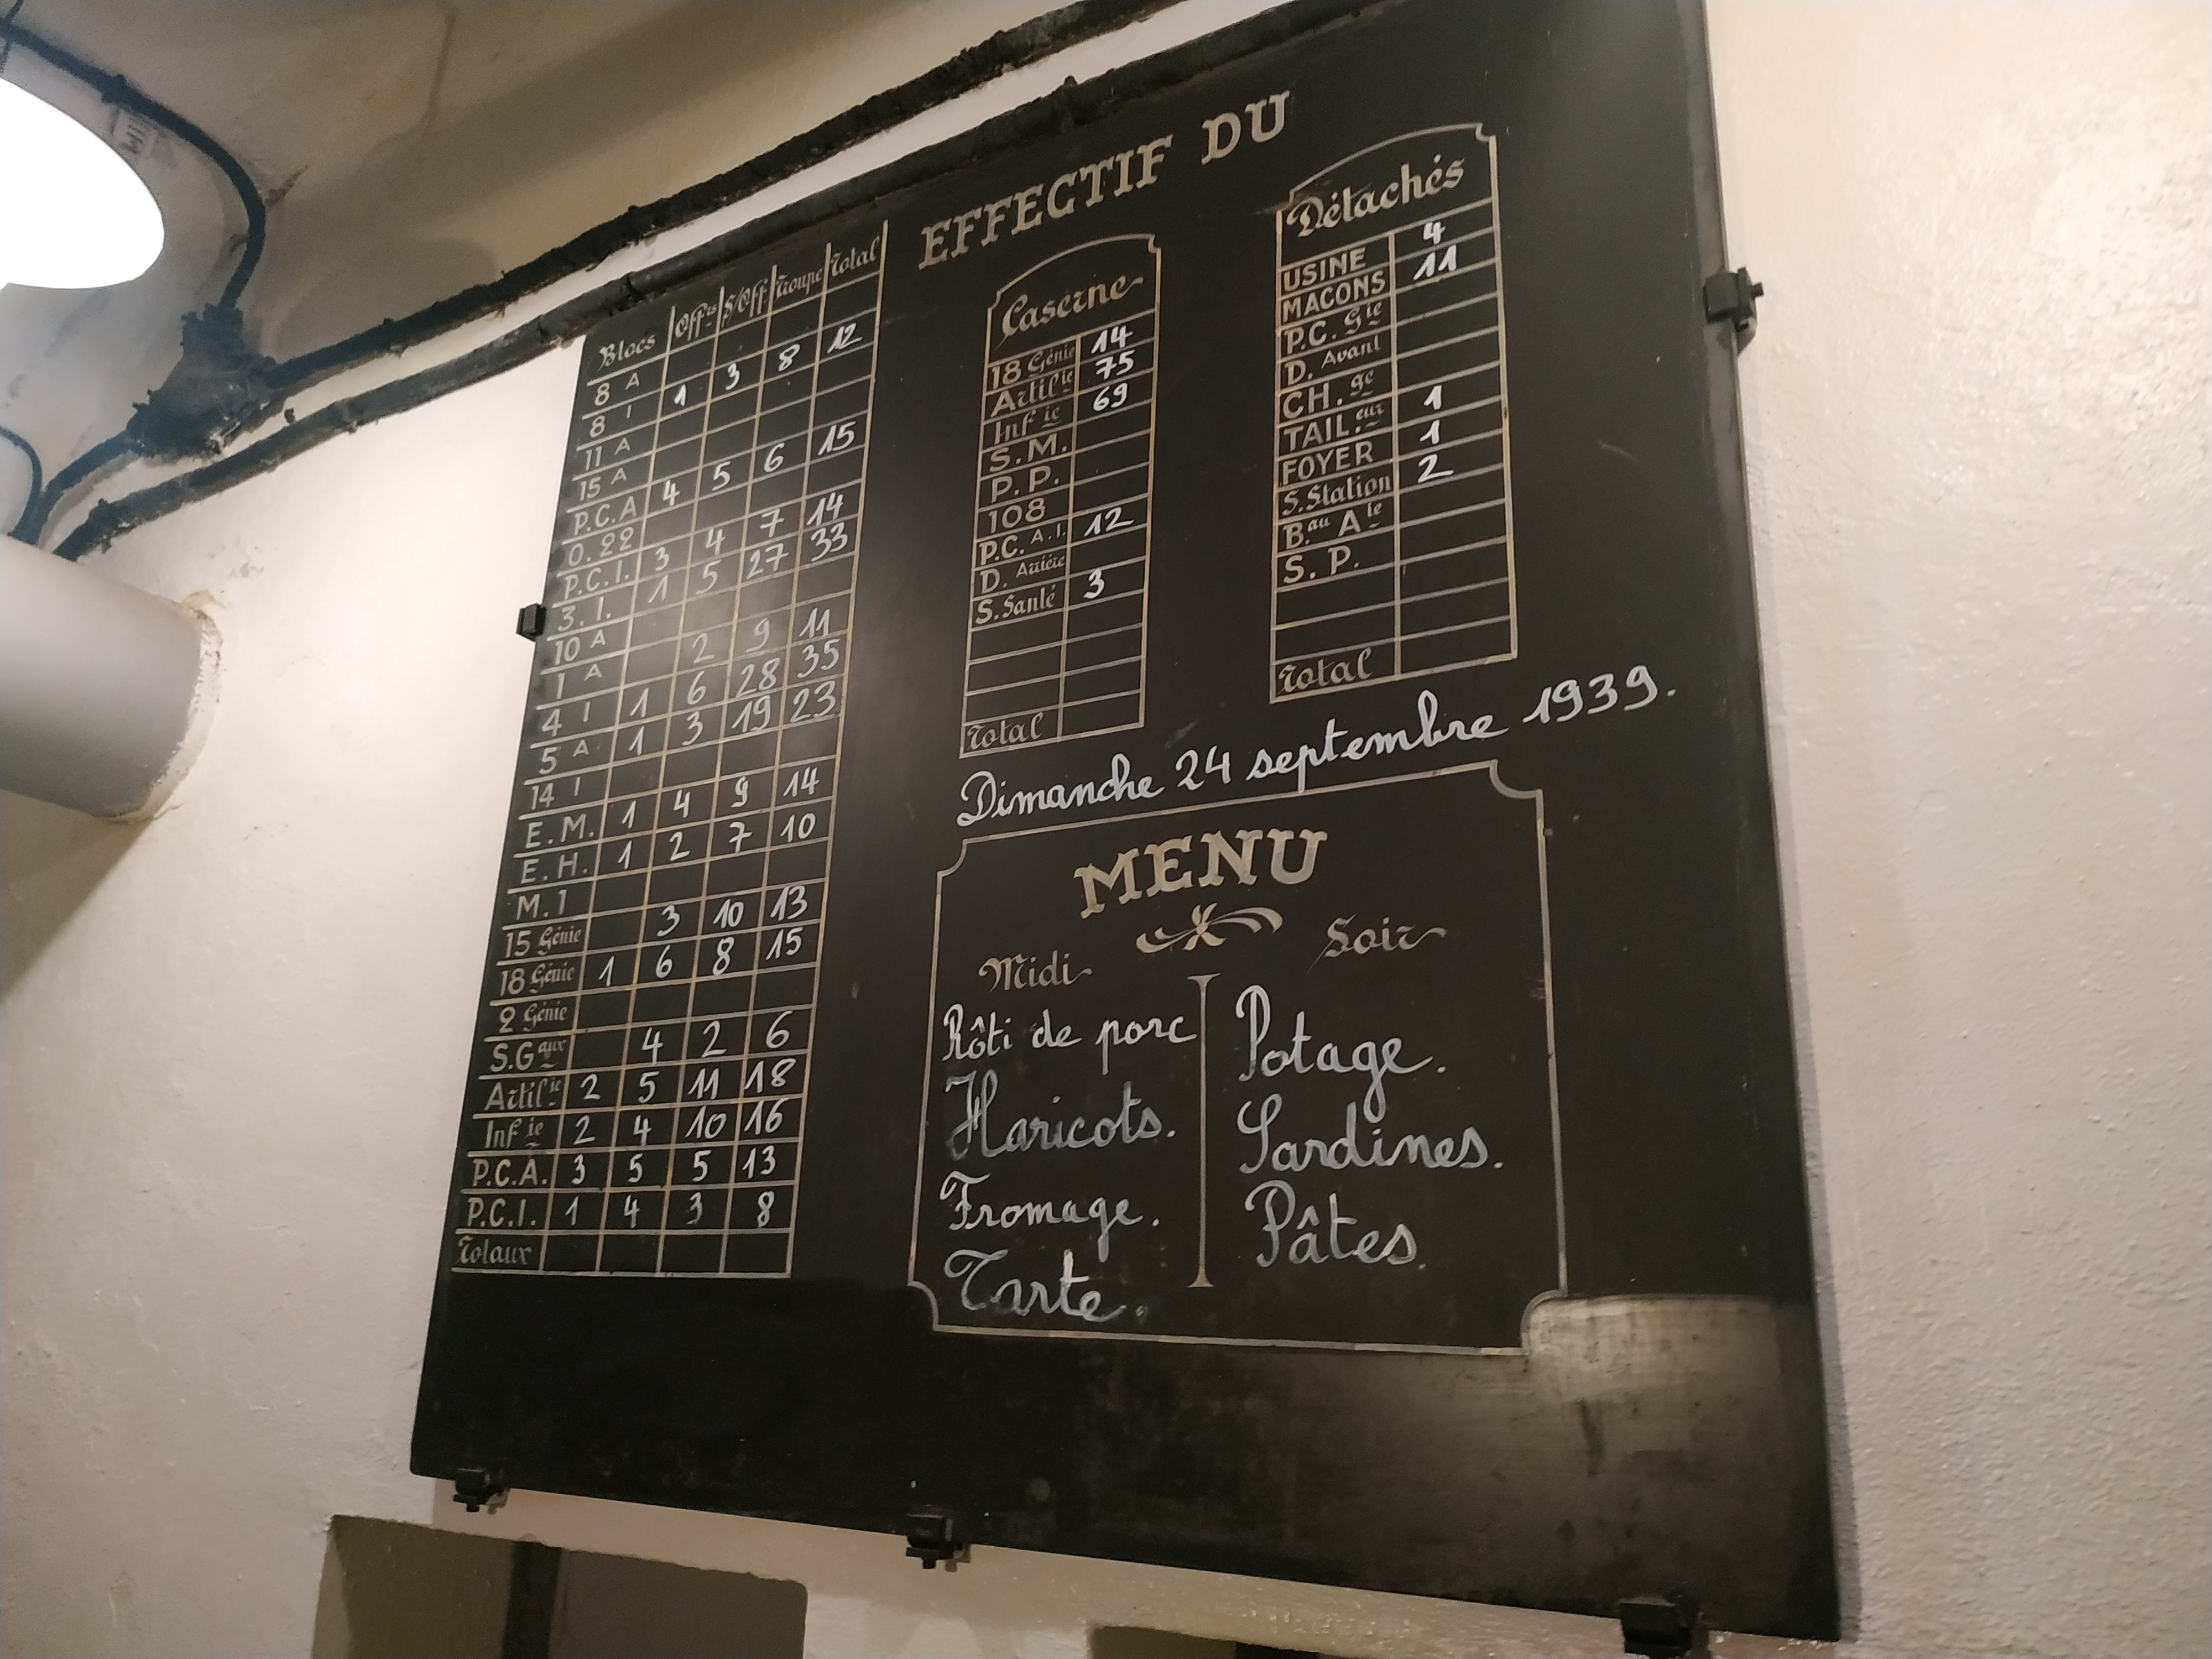 EFFECTIF DU
Blocs Off.rs S/Off Troupe Total
8 A
8 I 1 3 8 12
11 A
15 A
P.C.A 4 5 6 15
O. 22
P.C.I. 3 4 7 14
3. I. 1 5 27 33
10 A
1 A 2 9 11
4 I 1 6 28 35
5 A 1 3 19 23
14 I
E.M. 1 4 9 14
E.H. 1 2 7 10
M. 1
15 Génie 3 10 13
18 Génie 1 6 8 15
2 Génie
S.G aux 4 2 6
Artil.ie 2 5 11 18
Inf ie 2 4 10 16
P.C.A. 3 5 5 13
P.C.I. 1 4 3 8
Totaux
Caserne
18 Génie 14
Artil.ie 75
Inf ie 69
S.M.
P.P.
108
P.C. A.I. 12
D. Arrière
S. Santé 3
Total
Détachés
USINE 4
MACONS 11
P.C. Gie
D. Avant
CH. ge
TAIL. eur 1
FOYER 1
S. Station 2
B au A ie
S. P.
Total
Dimanche 24 septembre 1939.
MENU
Midi
Rôti de porc
Haricots.
Fromage.
Tarte.
Soir
Potage.
Sardines.
Pâtes.